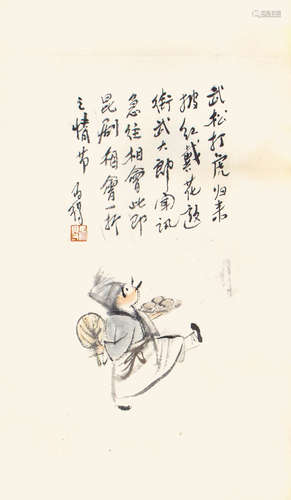 武松打虎归来
披红戴花游
街武大郎闻讯
急往相会此即
昆剧相会一折
之情节